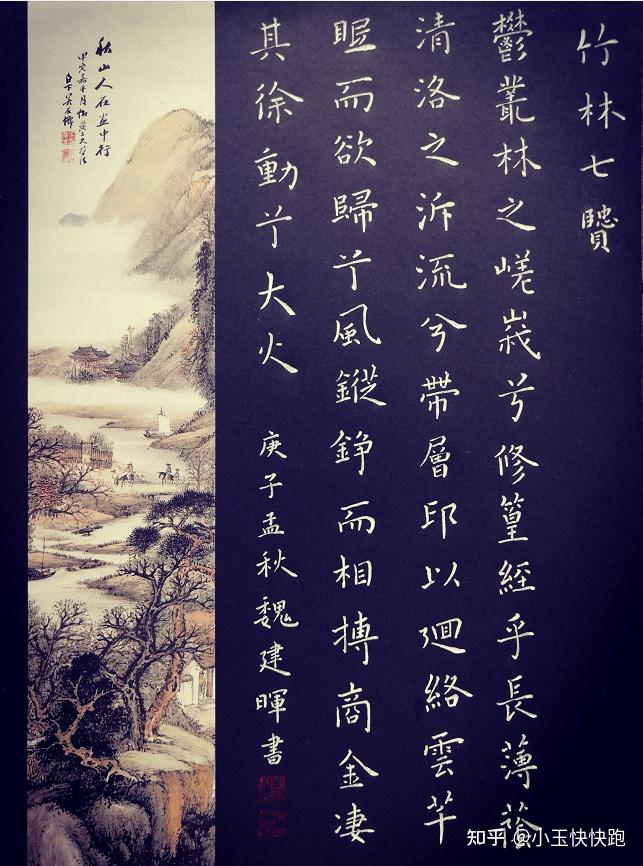 竹林七贒
鬱叢林之嵯峩兮修篁經乎長薄蓊
清洛之泝流兮帶層邙以廻絡雲芊
眠而欲歸兮風鏦錚而相搏商金凄
其徐動兮大火
庚子孟秋魏建暉書
秋山人在画中行
甲寅嘉平月
白下吴石僊
知乎 @小玉快快跑